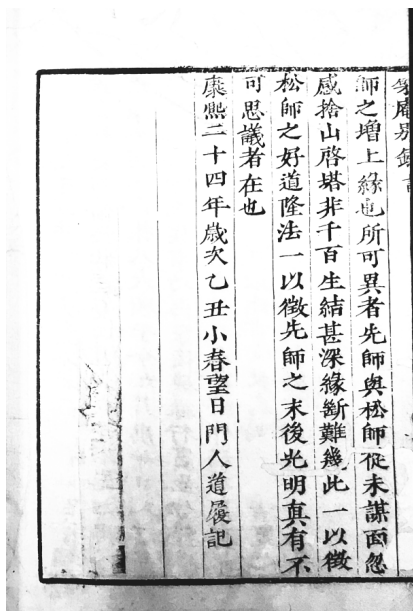 師之增上緣也所可異者先師與松師從未謀面忽
感捨山啓塔非千百生結甚深緣斷難幾此一以徵
松師之好道隆法一以徵先師之末後光明真有不
可思議者在也
康熙二十四年歲次乙丑小春望日門人道履記